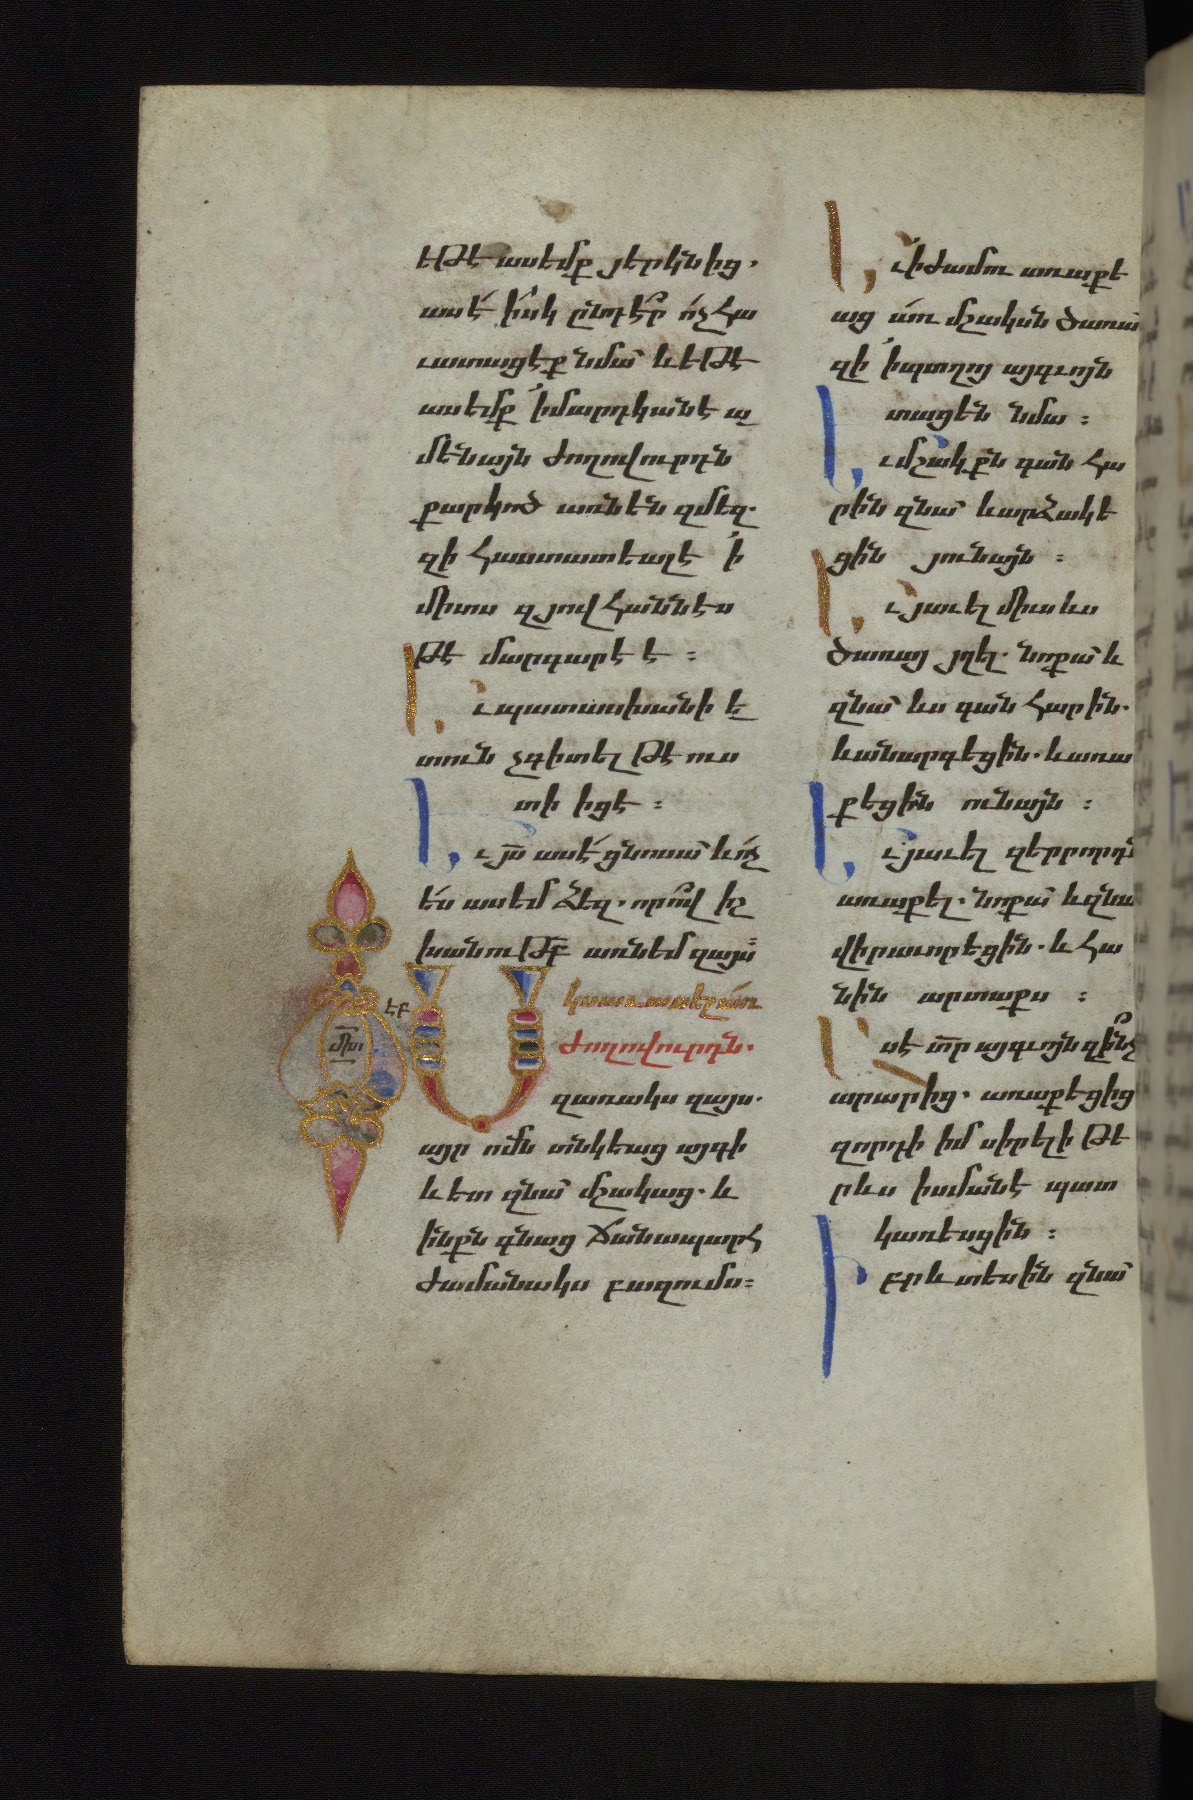 եթէ ասեմք յերկնից.
ասէ՛ իսկ ընդէ՞ր ո՛չ հա
ւատացէք նմա՝ և եթէ
ասեմք ՚ի մարդկանէ ա
մենայն ժողովուրդն
քարկոծ առնեն զմեզ.
զի հաստատեալ է ՚ի
միտս զյովհաննէս
թէ մարգարէ է ։
Եւ պատասխանի ե
տուն չգիտել թէ ուս
տի իցէ ։
Եւ յս̄ ասէ՛ ցնոսա՝ և ո՛չ
ե՛ս ասեմ ձեզ. որո՞վ իշ
խանութբ̄ առնեմ զայս՝
Սկսաւ ասել առ
ժողովուրդն.
զառակս զայս.
այր ոմն տնկեաց այգի
և ետ զնա՝ մշակաց. և
ինքն գնաց ճանապարհ
ժամանակս բազումս։
Եւ ՚ի ժամու առաքե
աց առ մշակսն ծառա՝
զի ՚ի պտղոյ այգւոյն
տացեն նմա ։
Եւ մշակքն գան հա
րին զնա՝ և արձակե
ցին յունայն ։
Եւ յաւել միւս ևս
ծառայ յղել. նոքա՝ և
զնա՝ ևս գան հարին.
և անարգեցին. և առա
քեցին ունայն ։
Եւ յաւել զերրորդն
առաքել. նոքա՝ և զնա
վիրաւորեցին. և հա
նին արտաքս ։
Ասէ տր̄ այգւոյն զի՞նչ
արարից. առաքեցից
զորդի իմ սիրելի թե
րևս իսմանէ պատ
կառեսցին ։
Իբրև տեսին զնա՝